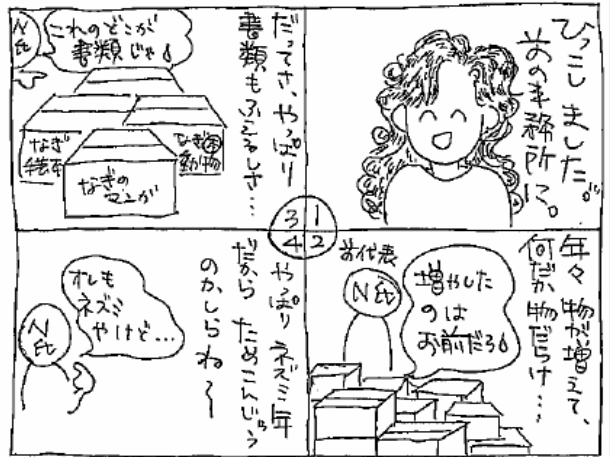 ひっこしました。
前の事務所に。
1
年々物が増えて、
何だか物だらけ…
増やした
のは
お前だろ
前代表
N氏
2
だってさ、やっぱり
書類もふえるしさ…
これのどこが
書類じゃ
N氏
なぎ
絵本
なぎのマンガ
動物
3
やっぱりネズミ年
だからためこんじゃう
のかしらね～
オレも
ネズミ
やけど…
N氏
4